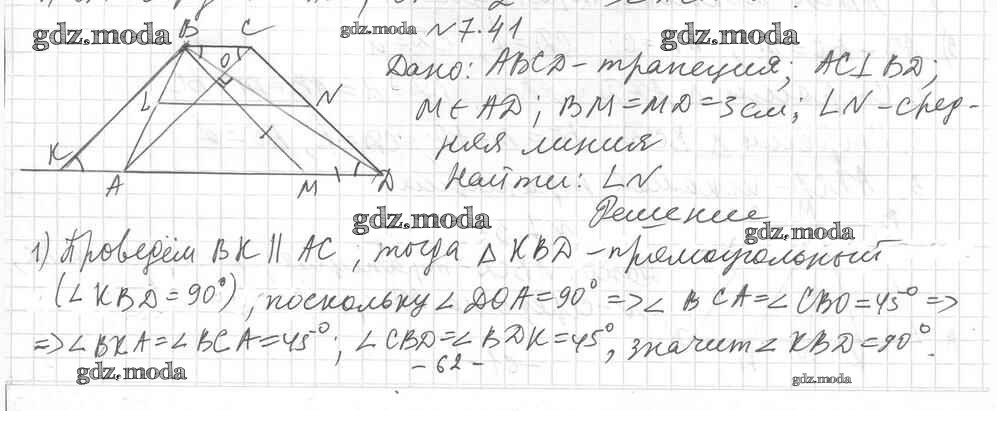 gdz.moda gdz.moda N 7.41 gdz.moda
Дано: ABCD - трапеция; AC⊥BD;
M ∈ AD; BM = MD = 3 см; LN - сред-
няя линия
Найти: LN
B C O L N K A M D
Решение
gdz.moda gdz.moda
1) Проведём BK || AC, тогда △ KBD - прямоугольный
(∠ KBD = 90°), поскольку ∠ DOA = 90° => ∠ BCA = ∠ CBO = 45° =>
=> ∠ BKA = ∠ BCA = 45°; ∠ CBD = ∠ BDK = 45°, значит ∠ KBD = 90°.
- 62 -
gdz.moda gdz.moda